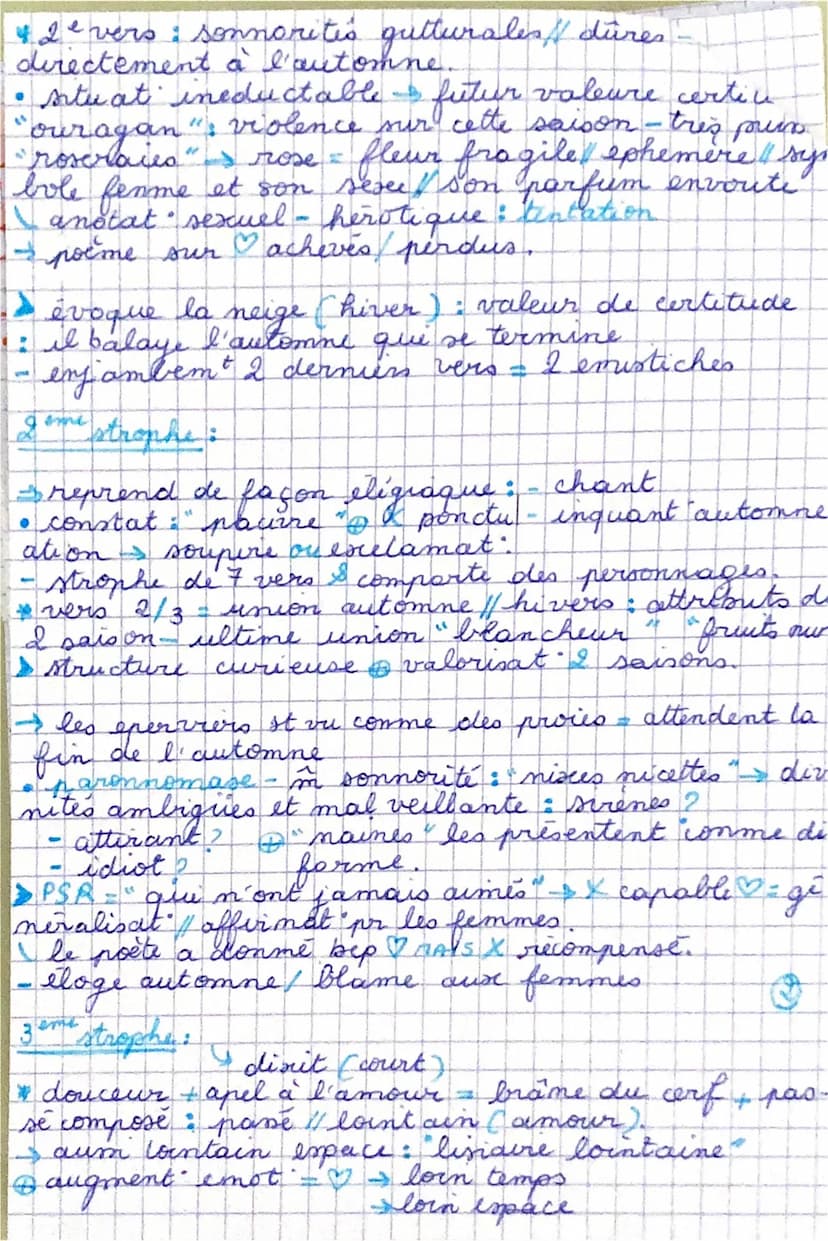 * 2e vers : sonnorités gutturales // dûres -
directement à l'automne.
• situat° ineductable → futur valeure certiu
"ouragan" : violence sur cette saison - très puis
"roseraies" → rose = fleur fragile // ephemère // sym
bole femme et son sexe // son parfum envoute
↳ anotat° sexuel - hérotique : tentation
→ poème sur ♡ achevés / perdus.
➤ évoque la neige (hiver) : valeur de certitude
: il balaye l'automne qui se termine
- enjambemt 2 derniers vers = 2 emistiches
2ème strophe :
→ reprend de façon éligiaque : - chant
• constat : "pauvre" ⊕ X ponctu - inquant automne
ation → soupire ou exclamat°
- strophe de 7 vers & comporte des personnages.
* vers 2/3 = union automne // hivers : attributs d
2 saison - ultime union "blancheur" "fruits mur
➤ structure curieuse ⊕ valorisat° 2 saisons.
→ les eperviers st vu comme des proies = attendent la
fin de l'automne
• paronnomase - m̂ sonnorité : "nixes nicettes" → divi
nités ambigües et mal veillante : sirènes ?
- attirant ? ⊕ "naines" les présentent comme di
- idiot ? forme.
➤ PSR = "qui n'ont jamais aimés" → X capable ♡ = gé
néralisat° // affirmat° pr les femmes.
↳ le poète a donné bcp ♡ MAIS X récompensé.
- éloge automne / blame aux femmes
2
3ème strophe :
↳ dizit (court)
* douceur + apel à l'amour = brâme du cerf + pas-
sé composé : passé // lointain (amour).
→ aussi lointain espace : "lisiaire lointaine"
⊕ augment° emot° = ♡ → loin temps
→ loin espace